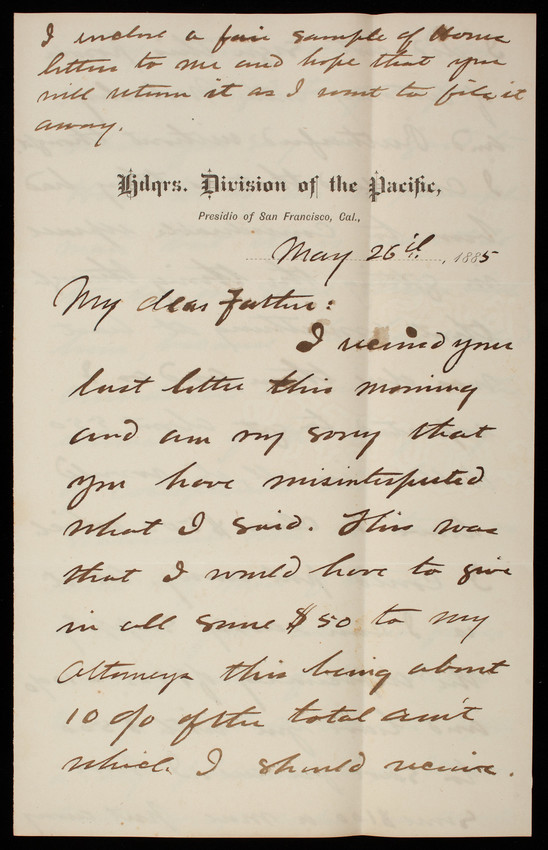 I enclose a fair sample of
letters to me and hope that you
will return it as I want to file it
away.
Hdqrs. Division of the Pacific,
Presidio of San Francisco, Cal.,
May 26th, 1885
My dear Father:
I received your
last letter this morning
and am very sorry that
you have misinterpreted
what I said. This was
that I would have to give
in all some $50 to my
Attorneys this being about
10 o/o of the total am't
which I should receive.